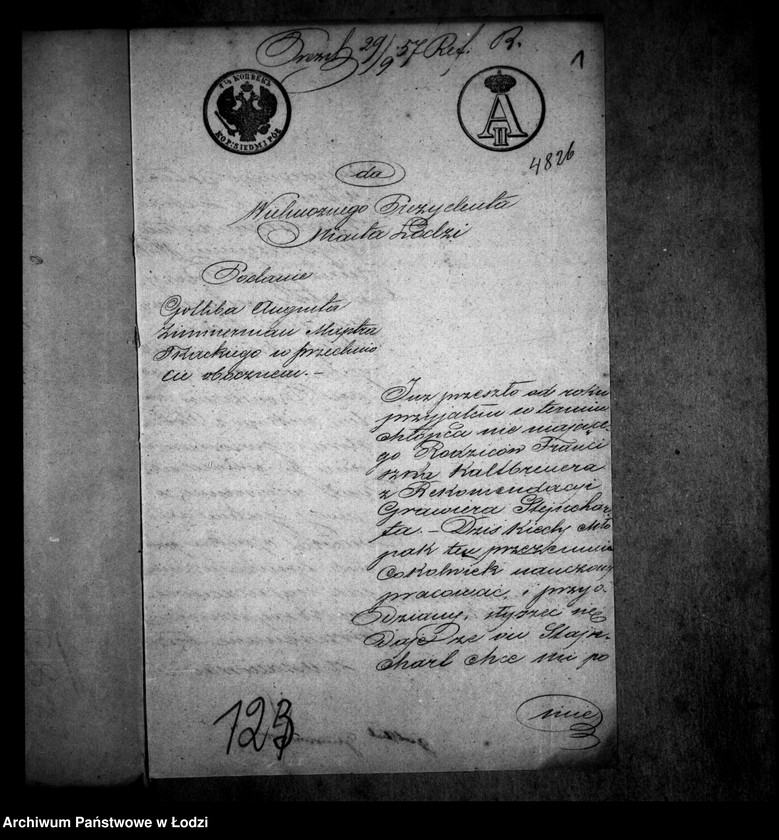 Prezit 29/9 57 Ref. R.
1
7½ KOPBEKЪ
KOP: SIEDM I PÓŁ
A II
4826
do
Wielmożnego Prezydenta
Miasta Łodzi
Podanie
Gottliba Augusta
Zimmerman Majstra
Tkackiego w przedmio
cie obocznem. –
Już przeszło od roku
przyjąłem w termin
chłopca nie mające
go Rodziców Franci
szka Kaltbrenera
z Rekomendacji
Grawera Stejnchar
ta. – Dziś kiedy chło
pak ten przezemnie
cokolwiek nauczony
pracować, i przyo
dziany, styszeć się
daje że on Stajn
chart chce mi po
mie
123
Archiwum Państwowe w Łodzi